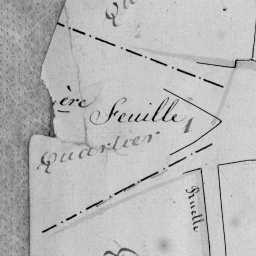 ère Feuille
Quartier 1
Ruelle